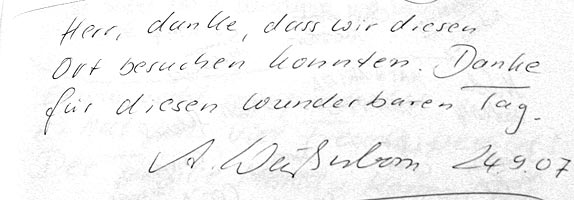 Herr, danke, dass wir diesen
Ort besuchen konnten. Danke
für diesen wunderbaren Tag.
A. Weißenborn 24.9.07